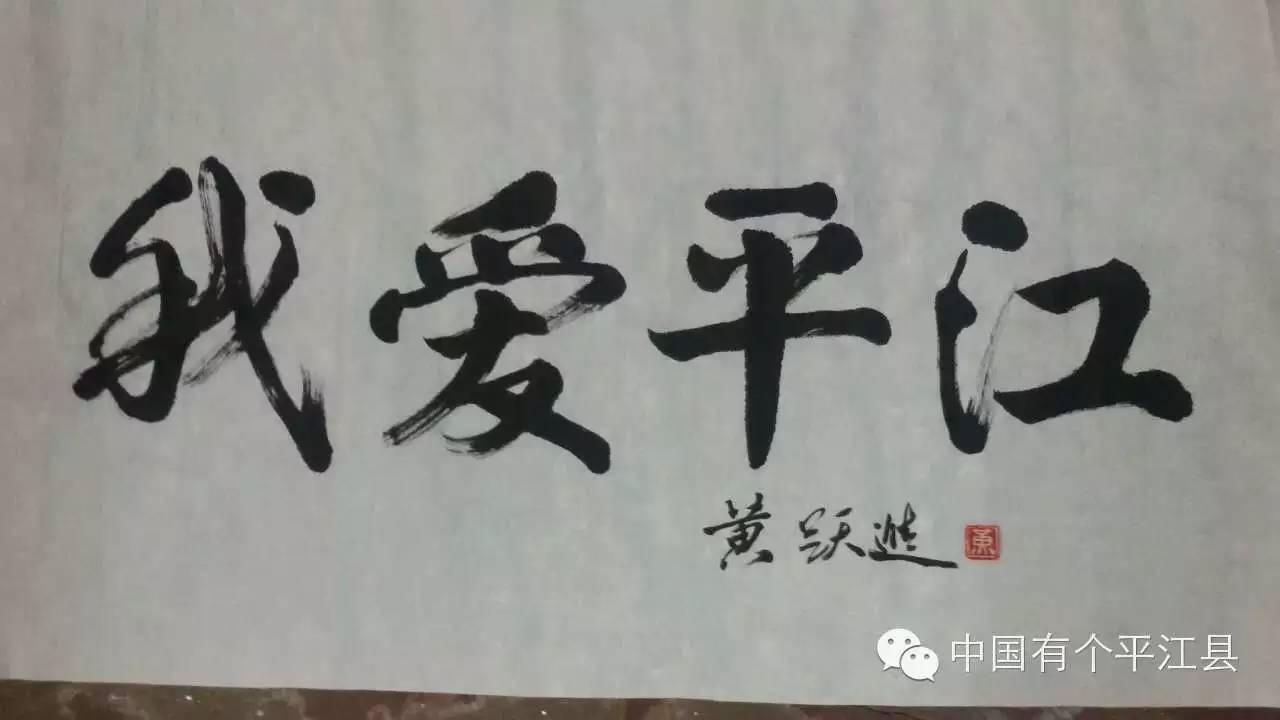 我爱平江
黄跃進
黄
中国有个平江县